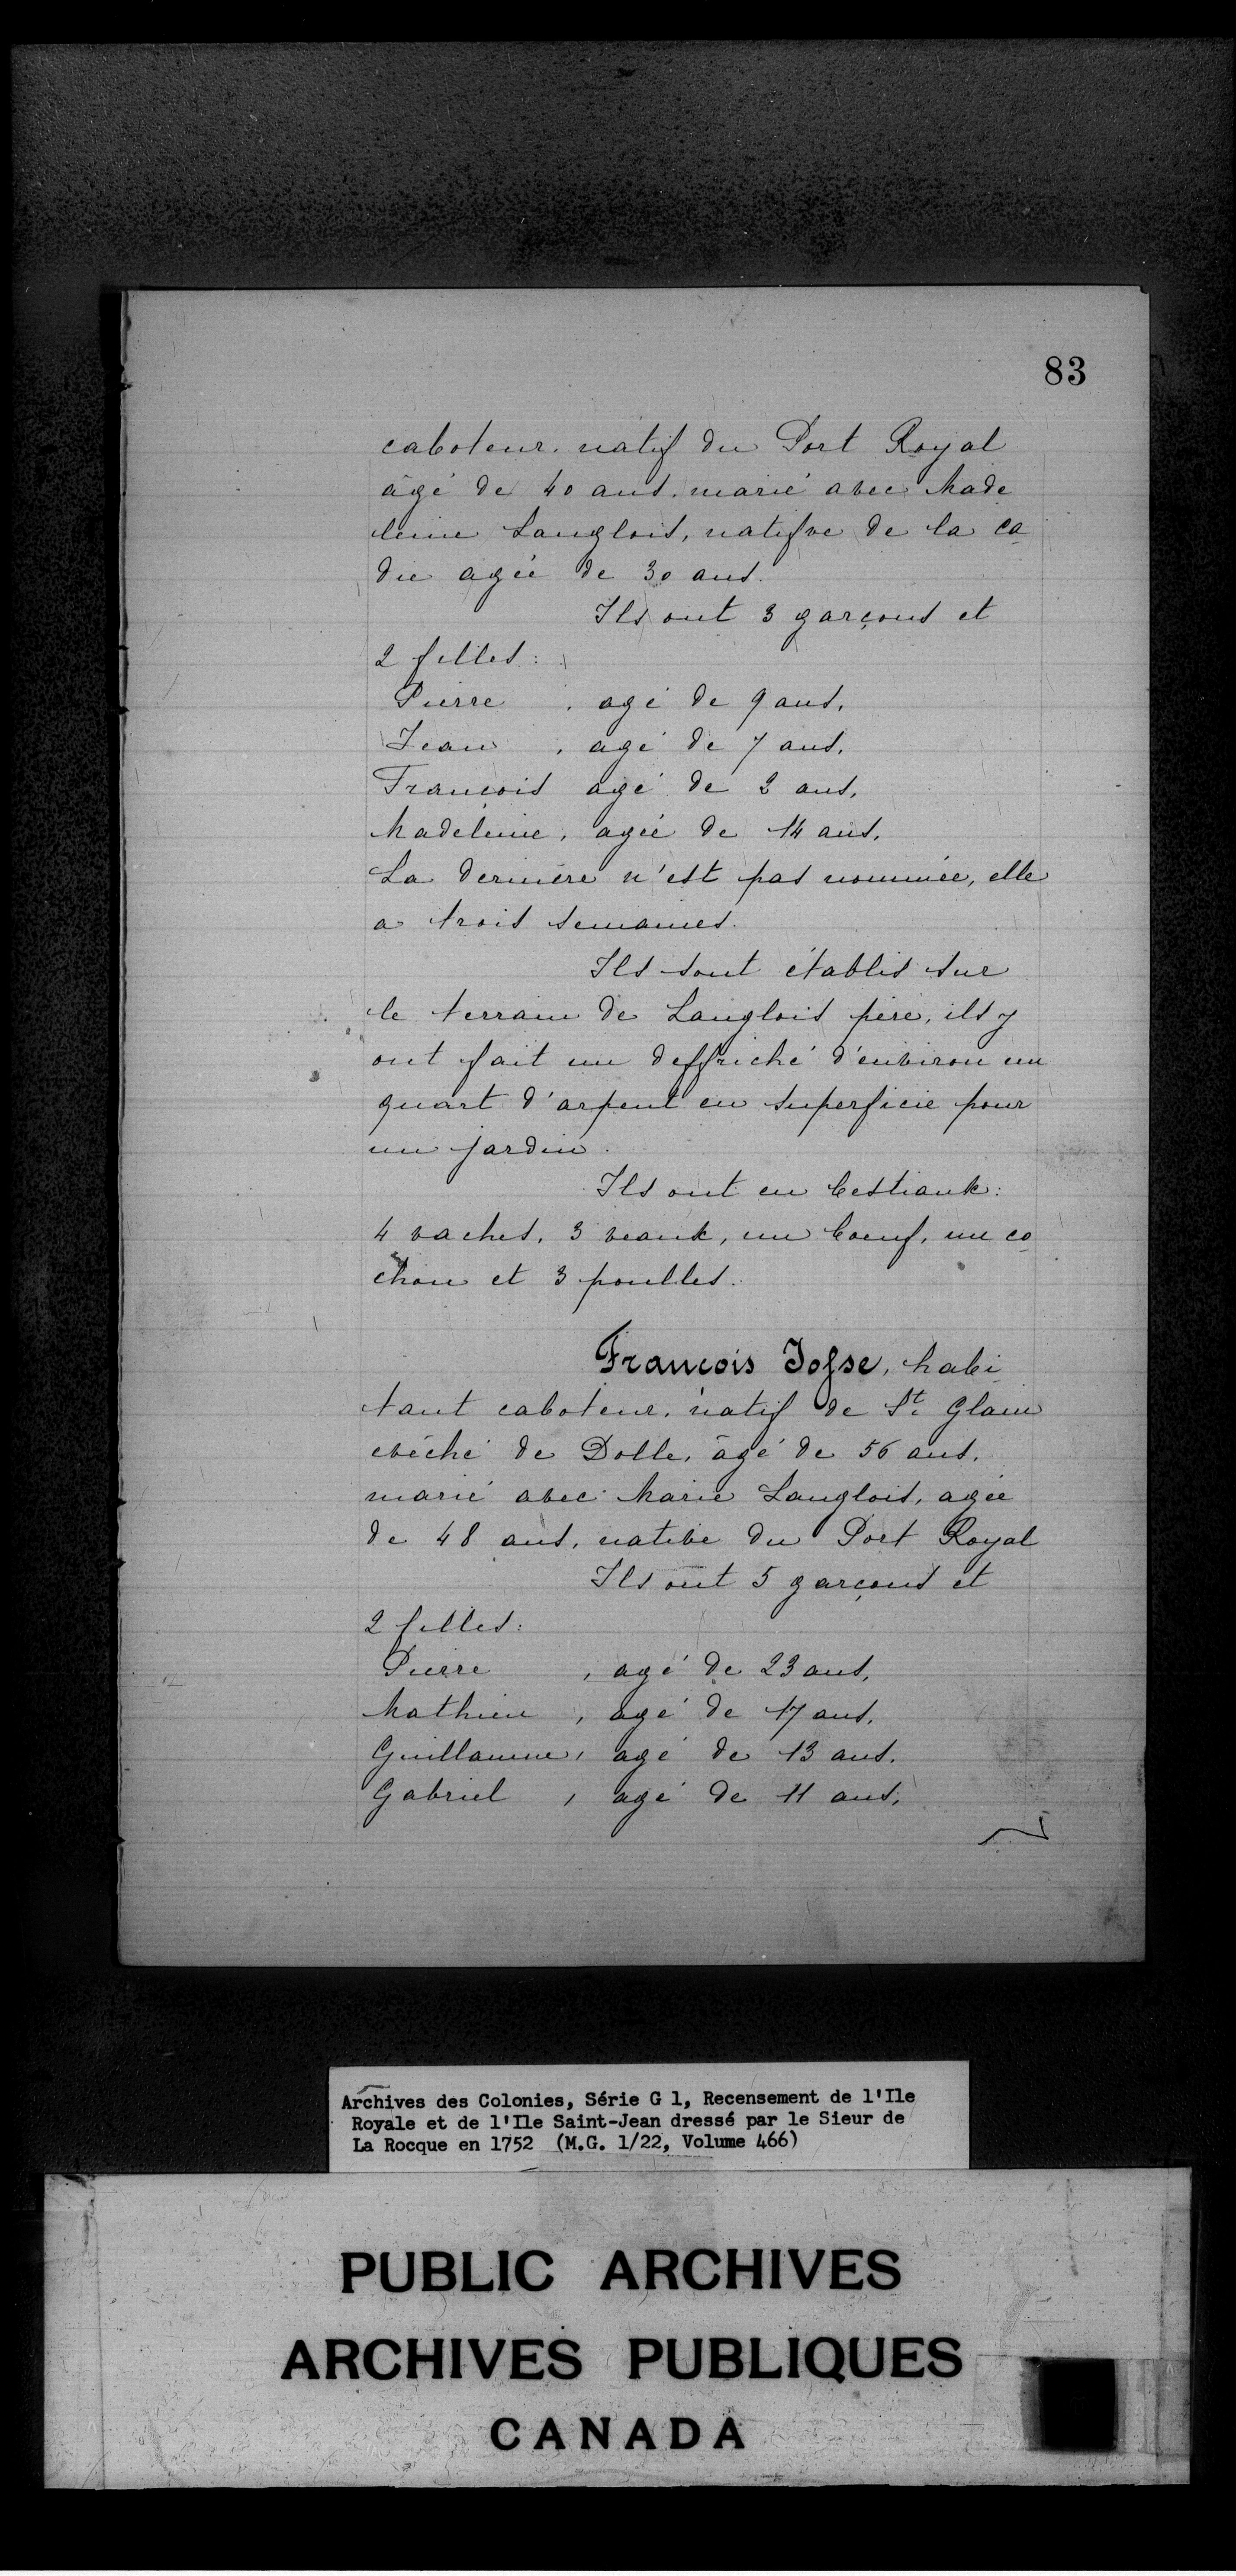 83
caboteur, natif du Port Royal
âgé de 40 ans, marié avec Made
leine Langlois, natifve de la Ca
die agée de 30 ans.
Ils ont 3 garçons et
2 filles:
Pierre, agé de 9 ans,
Jean, agé de 7 ans,
François agé de 2 ans,
Madeleine, agée de 14 ans,
La dernière n'est pas nommée, elle
a trois semaines.
Ils sont établis sur
le terrain de Langlois père, ils y
ont fait un deffriché d'environ un
quart d'arpent en superficie pour
un jardin.
Ils ont en bestiaux:
4 vaches, 3 veaux, un boeuf, un co
chon et 3 poulles.
François Josse, habi
tant caboteur, natif de St. Glam
evêché de Dolle, âgé de 56 ans,
marié avec Marie Langlois, agée
de 48 ans, native du Port Royal
Ils ont 5 garçons et
2 filles:
Pierre, agé de 23 ans,
Mathieu, agé de 17 ans,
Guillaume, agé de 13 ans,
Gabriel, agé de 11 ans,
Archives des Colonies, Série G 1, Recensement de l'Ile
Royale et de l'Ile Saint-Jean dressé par le Sieur de
La Rocque en 1752 (M.G. 1/22, Volume 466)
PUBLIC ARCHIVES
ARCHIVES PUBLIQUES
CANADA